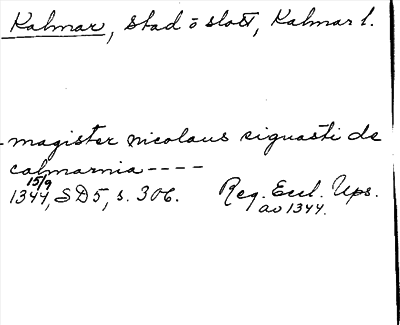 Kalmar, stad o slott, Kalmar l.
magister nicolaus siguasti de
calmarnia ----
15/9
1344, SD5, s. 306. Reg. Eccl. Ups.
av 1344.